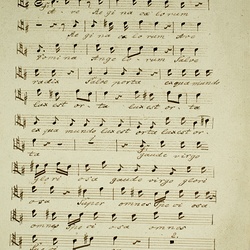 ave regina coelorum
Regina coelorum Ave
Domina Angelorum Salve
radix Salve porta ex qua mundo
lux est orta lux est orta
ex qua mundo lux est orta lux est or
ta Gaude virgo
glori osa gaude virgo glori
osa Super omnes speciosa
omnes speciosa omnes